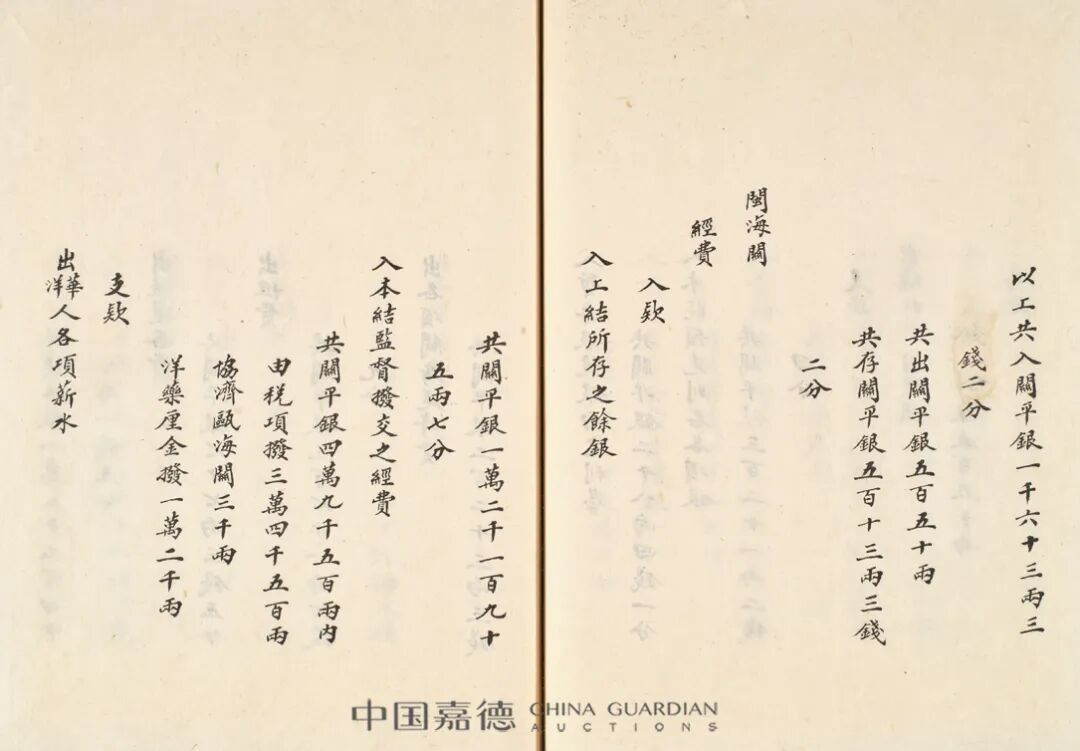 以上共入關平銀一千六十三兩三
錢二分
共出關平銀五百五十兩
共存關平銀五百十三兩三錢
二分
閩海關
經費
入款
入上結所存之餘銀
共關平銀一萬二千一百九十
五兩七分
入本結監督撥交之經費
共關平銀四萬九千五百兩內
由稅項撥三萬四千五百兩
協濟甌海關三千兩
洋藥厘金撥一萬二千兩
支款
出華洋人各項薪水
中国嘉德 CHINA GUARDIAN
AUCTIONS